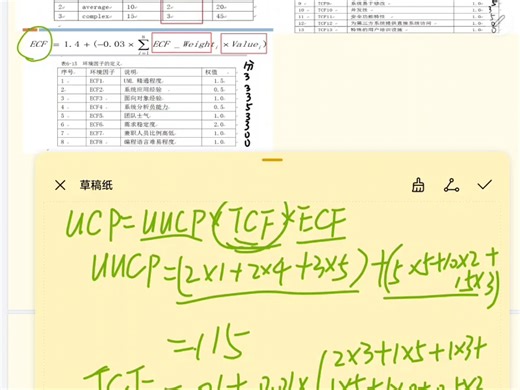 2. average. 10. 2. 20.
3. complex. 15. 3. 45.
ECF = 1.4 + (−0.03 × ∑ ECF _ Weight i × Value i )
表6-15 环境因子的定义
序号. 环境因子 说明. 权值
1. ECF1. UML 精通程度. 1.5.
2. ECF2. 系统应用经验. 0.5.
3. ECF3. 面向对象经验. 1.0.
4. ECF4. 系统分析员能力. 0.5.
5. ECF5. 团队士气. 1.0.
6. ECF6. 需求稳定度. 2.0.
7. ECF7. 兼职人员比例高低. 1.0.
8. ECF8. 编程语言难易程度. 1.0.
3
3
3
5
3
3
0
0
10. TCF10. 1.0
11. TCF11. 安全功能特性 1.0
12. TCF12. 为第三方系统提供直接系统访问 1.0
13. TCF13. 特殊的用户培训设施 1.0
草稿纸
UCP=UUCP×TCF×ECF
UUCP=(2×1+2×4+3×5)+(5×5+10×2+
15×3)
=115
2×3+1×5+1×3+